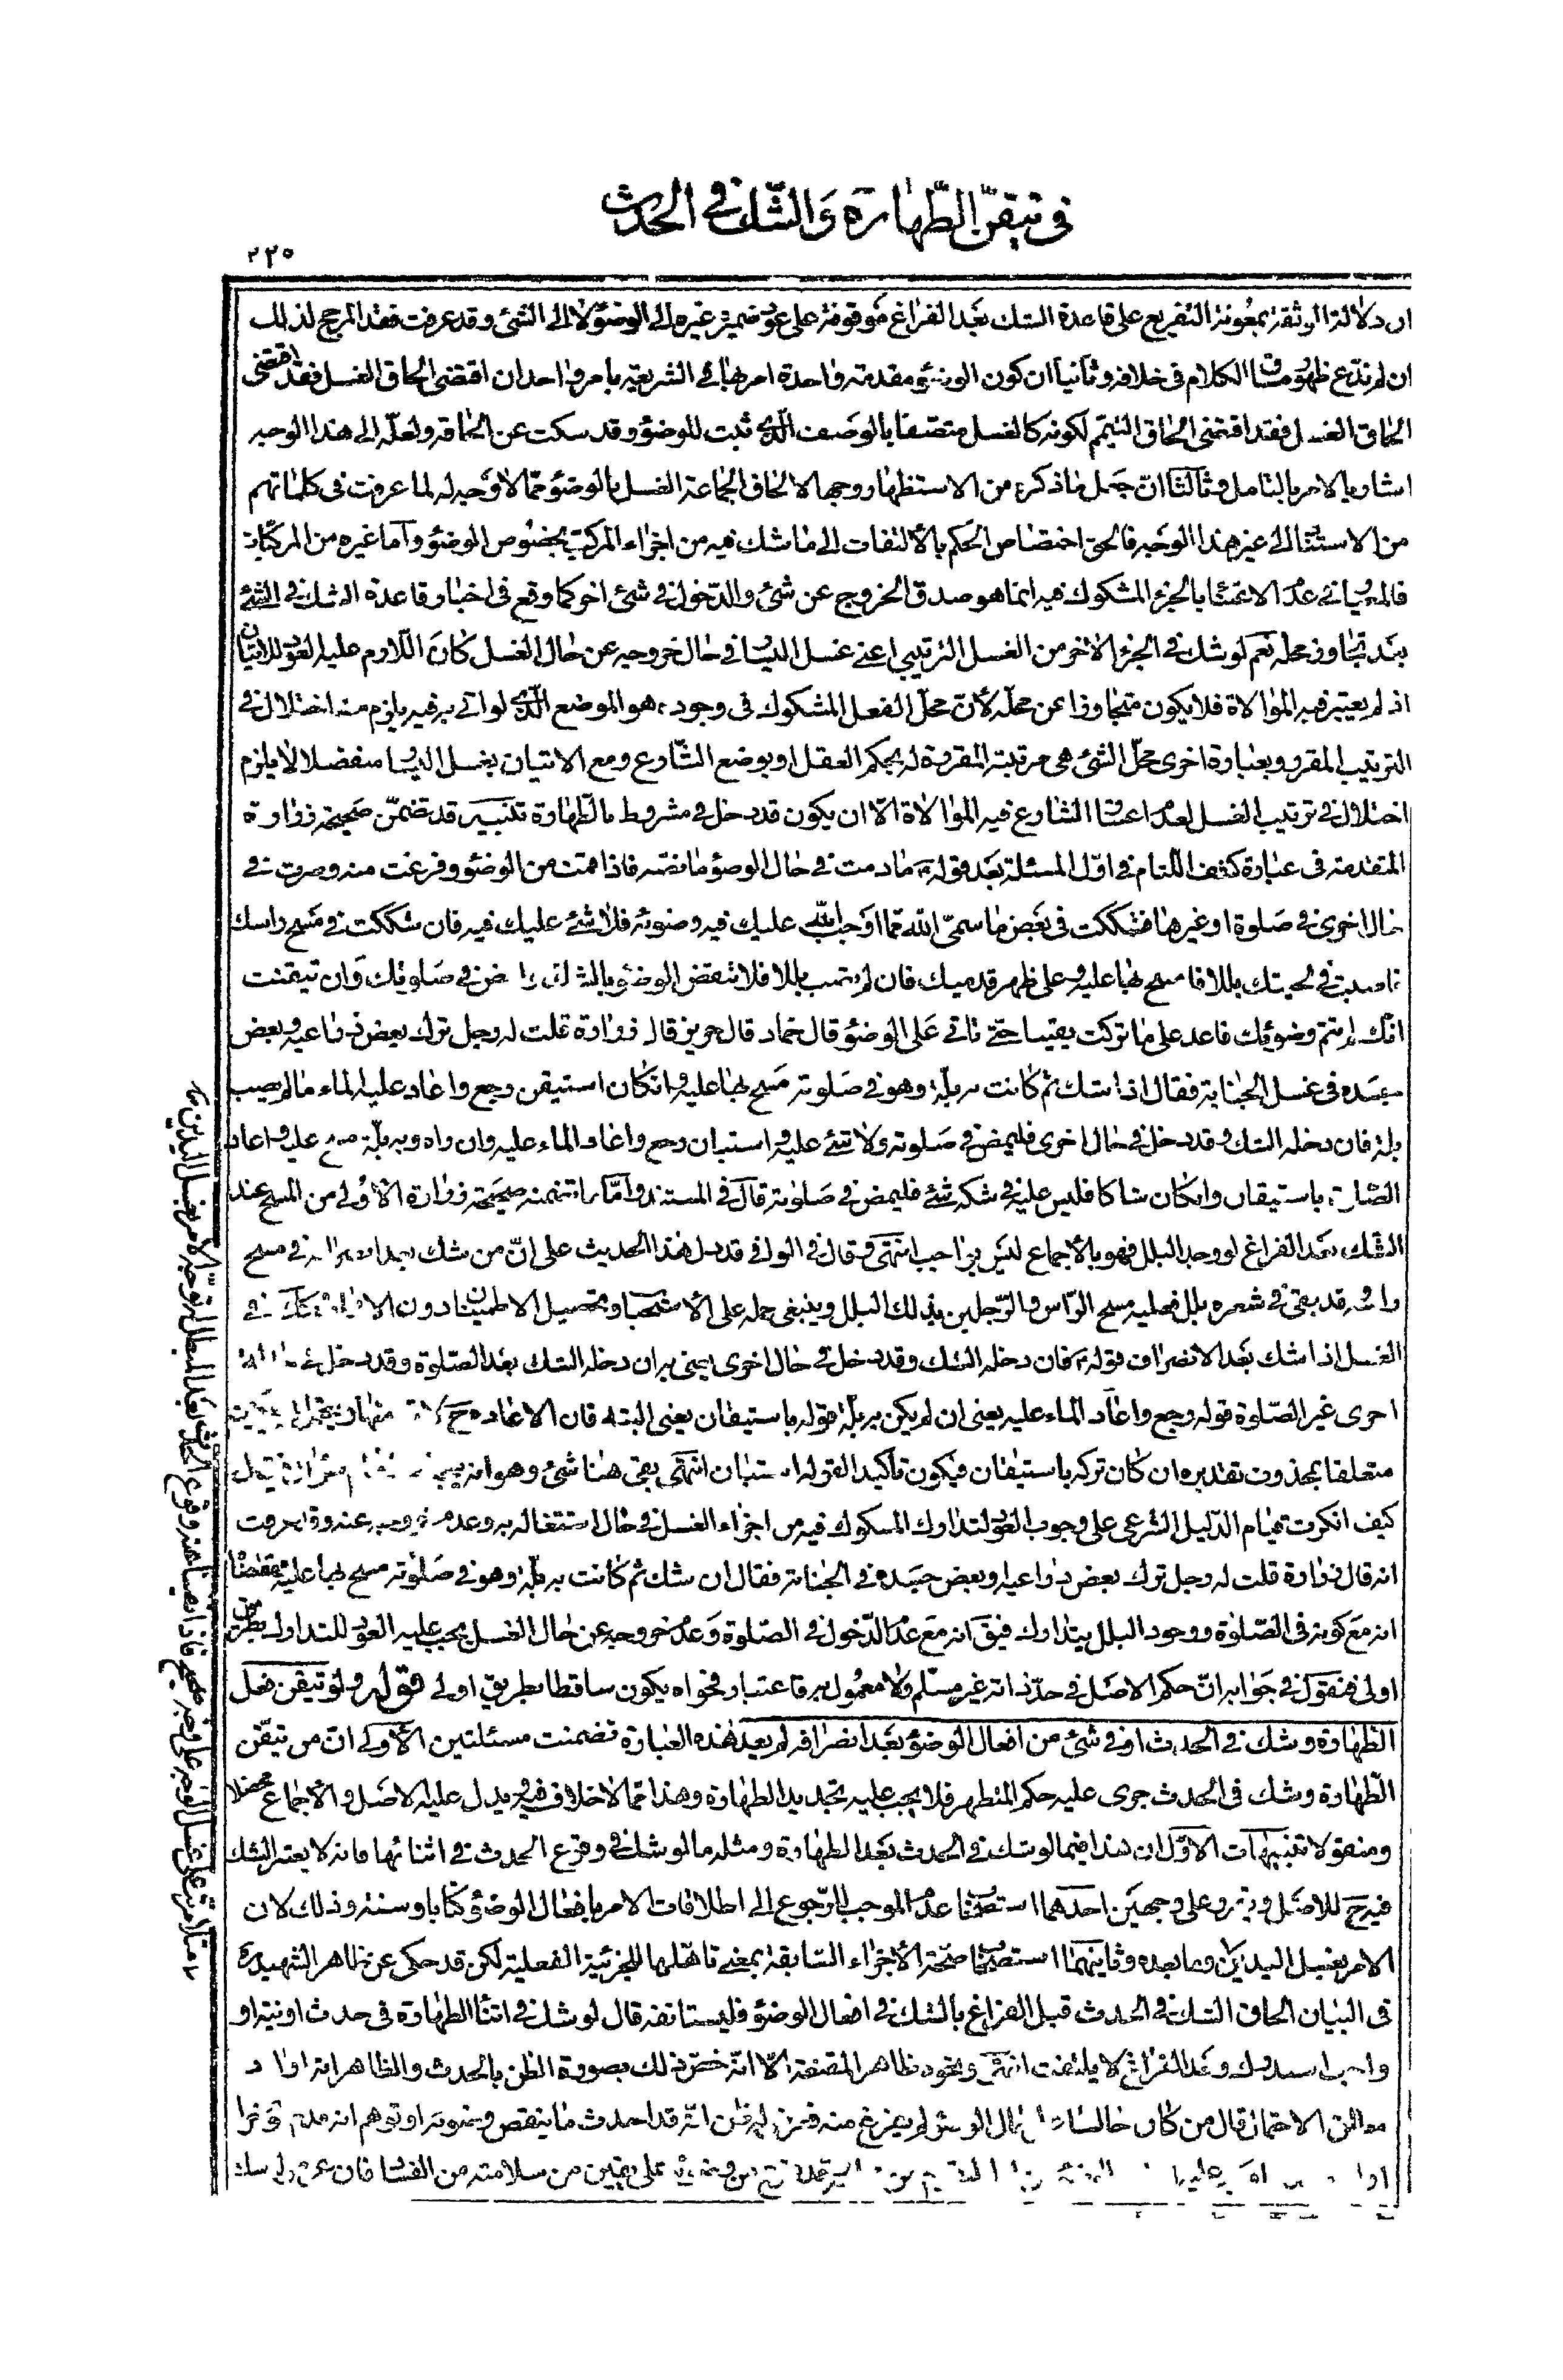 في تيقن الطّهارة وَالشّك في الحدث
٢٢٥
ان دلالة الموثقة بمعُونة التفريع على قاعدة الشك بعَد الفراغ مَوقوفة على عود ضمير غيره الى الوضوُ لا الى الشئ وقد عرفت فقد المرجح لذلك
ان لم ندّع ظهوُر مساق الكلام في خلافه وثانياً ان كون الوضوُ مقدمة واحدة امر بها في الشريعة بامر واحد ان اقتضى الحاق الغسل فقد اقتضى
الحاق الغسل فقد اقتضى الحاق التيمّم لكونه كالغسل متصّفا بالوصَف الّذى ثبت للوضوُ وقد سكت عن الحاقه ولعلّه الى هذا الوجه
اشار بالامر بالتامل وثالثا انّ جَعل ما ذكره من الاستظهار وجها لالحاق الجماعة الغسل بالوضوُ ممّا لا وَجه له لما عرفت في كلماتهم
من الاستناد الى غير هذا الوَجه فالحق اختصاص الحكم بالالتفات الى ما شك فيه من اجزاء المركّب بخصُوص الوضوُ وامّا غيره من المركّبات
فالمعيار في عدم الاعتناء بالجزء المشكوك فيه انما هو صدق الخروج عن شئ والدّخول في شئ اخر كما وقع في اخبار قاعدة الشك في الشئ
بعَد تجاوز محله نعم لو شك في الجزء الاخر من الغسل الترتيبي اعنى غسل اليسار في حال خروجه عن حال الغسل كان اللّازم عليه العود للاتيان
اذ لم يعتبر فيه الموالاة فلا يكون متجاوزا عن محلّه لأنّ محلّ الفعل المشكوك في وجوده هو الموضع الّذى لو اتى به فيه يلزم منه اختلال في
الترتيب المقرر وبعبارة اخرى محلّ الشئ هى مرتبته المقررة له بحكم العقل او بوضع الشّارع ومع الاتيان بغسل اليسار منفصلا لا يلزم
اختلال في ترتيب الغسل لعدم اعتبار الشارع فيه الموالاة الّا ان يكون قد دخل في مشروط بالطّهارة تنبيه قد تضمّن صَحيحة زرارة
المتقدمة في عبارة كشف اللّثام في اوّل المسئلة بعَد قوله ما دمت في حال الوضوُ ما نصّه فاذا قمت من الوضوُ وفرغت منه وصرت في
حال اخرى في صَلوة او غيرها فشككت في بعَض ما سمّى الله ممّا اوجب الله عليك فيه وضوئه فلا شئ عليك فيه فان شككت في مَسح راسك
فاصبت في لحيتك بللا فامسح بها عليه وعلى ظهر قدميك فان لم تصب بللا فلا تنقض الوضوُ بالشك وامض في صَلوتك وَان تيقنت
انّك لم تتم وضوئك فاعد على ما تركت يقينا حتى تاتي عَلى الوضوُ قال حماد قال حريز قال زرارة قلت له رجل ترك بعض ذراعيه وبعض
جسَده في غسل الجنابة فقال اذا شك ثم كانت به بلّة وهو في صَلوته مَسح بها عليه وان كان استيقن رجع واعاد عليه الماء ما لم يصب
بلة فان دخله الشك وقد دخل في حال اخرى فليمض في صَلوته ولا شئ عليه وان استبان رجع واعاد الماء عليه وان راه وبه بلّة مسح عليه واعاد
الصّلوة باستيقان وان كان شاكا فليس عليه في شكه شئ فليمض في صَلوته قال في المستند وامّا ما تضمنه صحيحة زرارة الاوُلى من المسح عند
الشّك بعَد الفراغ لو وجد البلل فهو بالأجماع ليَس بواجب انتهى وقال في الوافي قد دل هذا الحديث على انّ من شك في مسح
راسه وقد بقى في شعره بلل فعليه مسح الرّاس والرّجلين بذلك البلل وينبغى حمله على الأستحباب وتحصيل الاطمينان دون في
الغسل اذا شك بعَد الانصراف قوله فان دخله الشك وقد دخل في حال اخرى يعنى به ان دخله الشك بعَد الصّلوة وقد دخل في حالة
اخرى غير الصّلوة قوله رجع واعاد الماء عليه يعنى ان لم يكن به بلّة قوله باستيقان يعنى البتة فان الاعادة ح
متعلقا بمحذوف تقديره ان كان تركه باستيقان فيكون تاكيد القوله استبان انتهى بقى هنا شئ وهو انه
كيف انكرت قيام الدّليل الشرعى على وجوب العود لتدارك المشكوك فيه من اجزاء الغسل في حال اشتغاله به وعدم خروجه عنه وقد عرفت
انه قال زرارة قلت له رجل ترك بعض ذراعيه وبعض جسَده في الجنابة فقال ان شك ثم كانت به بلّة وهو في صَلوته مسح بها عليه فقضّا
انه مَع كونه في الصّلوة ووجود البلل يتدارك فيق انه مَع عدم الدّخول في الصّلوة وَعدم خروجه عن حال الغسل يجب عليه العود للتدارك بطريق
اولى فنقول في جوَابه انّ حكم الاصَل في حدّ ذاته غير مسلّم ولا معمُول به فاعتبار فحواه يكون ساقطا بطريق اولى قوله ولو تيقن فعل
الطّهارة وشك في الحدث او في شئ من افعال الوضوُ بعَد انصرَافه لم يعد هذه العبارة تضمنت مسئلتين الأوُلى انّ من تيقّن
الطّهارة وشك في الحدث جرى عليه حكم المتطهر فلا يجب عليه تجديد الطهارة وهذا ممّا لا خلاف فيه ويدل عليه الاصَل والأجماع محصلا
ومنقولا تنبيهات الاَوّل ان هذا فيما لو شك في الحدث بعَد الطهارة ومثله ما لو شك في وقوع الحدث في اثنائها فانه لا يعتبر الشك
فيه للاصَل على وجهين احدهما استصحاب عدم الموجب للرّجوع الى اطلاقات الامر بافعال الوضوُ كتابا وسنة وذلك لان
الامر بغسل اليدَين وما بعده وثانيهما استصحاب صحّة الأجزاء السّابقة بمعنى تاهّلها للجزئية الفعلية لكن قد حكى عن ظاهر الشهيد ره
في البيان الحاق الشك في الحدث قبل الفراغ بالشك في افعال الوضوُ فليستانفه قال لو شك في اثناء الطهارة في حدث او نية او
واجب وبعَد الفراغ لا يلتفت انتهى ونحوه ظاهر المقنعة الّا انّه خصّ ذلك بصورة الظن بالحدث والظاهر انه اراد
الاحتمال قال من كان جالسا لم يفرغ منه انّه قد احدث ما ينقض وضوئه او توهم انه
على يقين من سلامته من الفساد فان